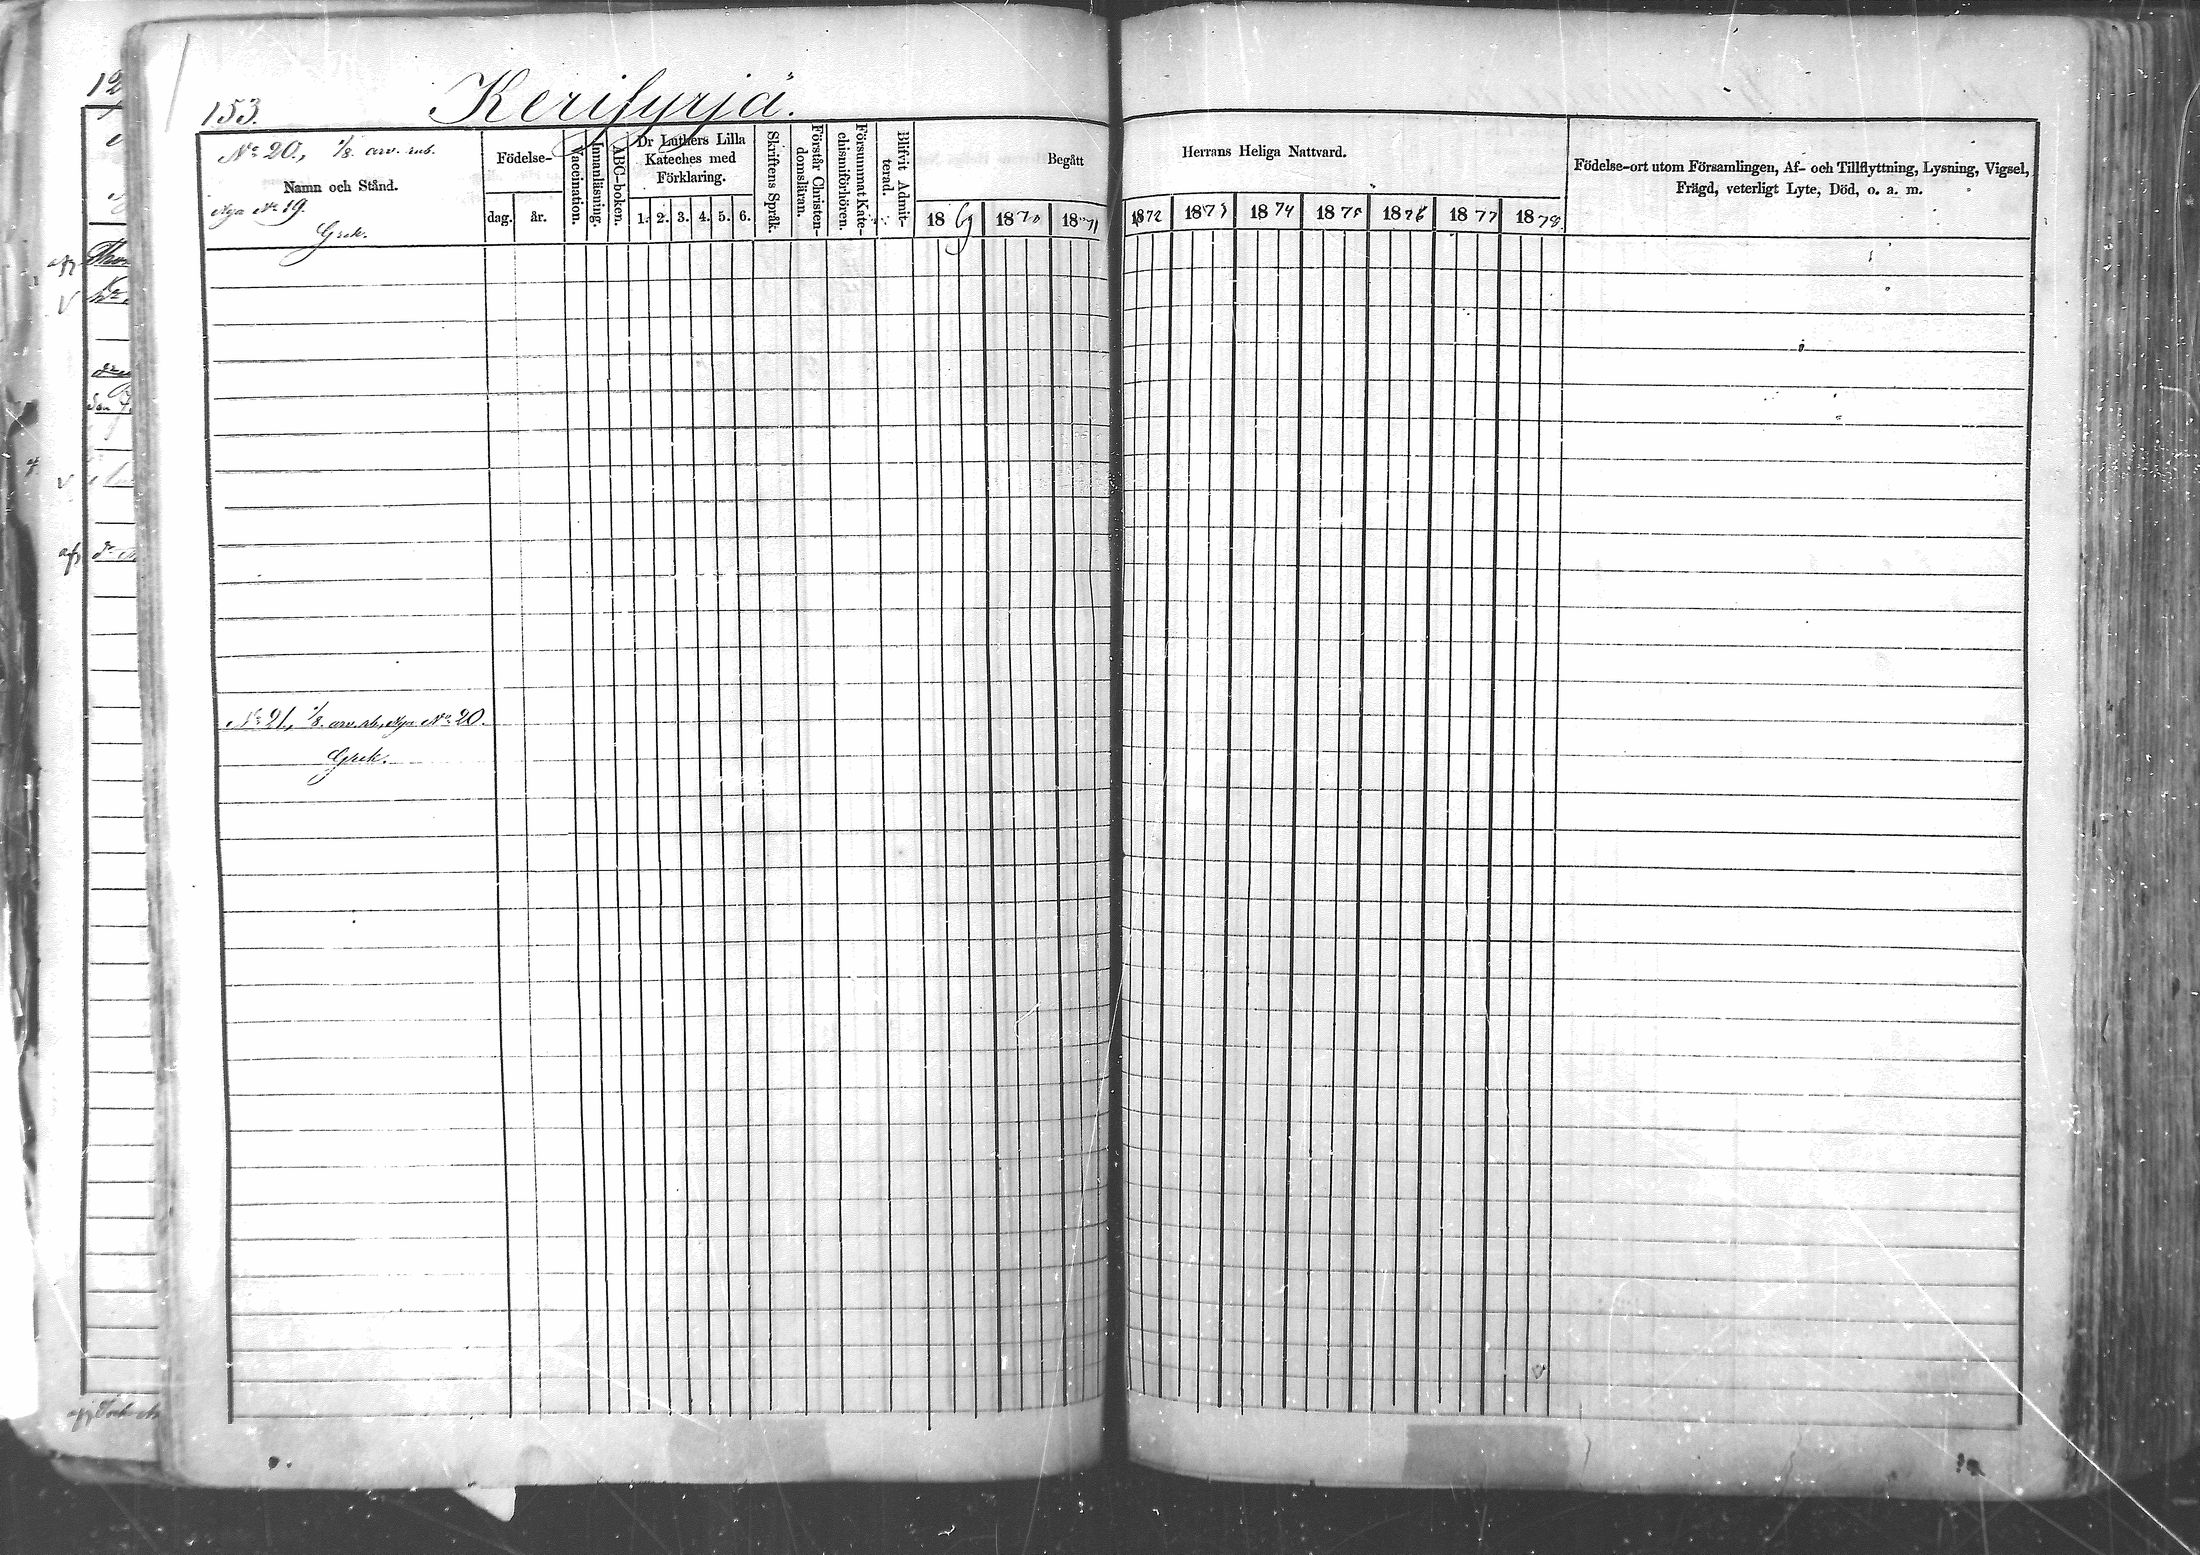 153.
Kerisyrjä.
No 20., 1/8. arv. rub.
Namn och Stånd.
Nya No 19.
Grek.
Födelse-
dag. år.
Vaccination.
Innanläsning.
ABC-boken.
Dr Luthers Lilla
Kateches med
Förklaring.
1. 2. 3. 4. 5. 6.
Skriftens Språk.
Förstår Christen-
domsläran.
Försummat Kate-
chismiförhören.
Blifvit Admit-
terad.
Begått
1869 1870 1871
Herrans Heliga Nattvard.
1872 1873 1874 1875 1876 1877 1878
Födelse-ort utom Församlingen, Af- och Tillflyttning, Lysning, Vigsel,
Frägd, veterligt Lyte, Död, o. a. m.
No 21, 1/8. arv. rb., Nya No 20.
Grek.